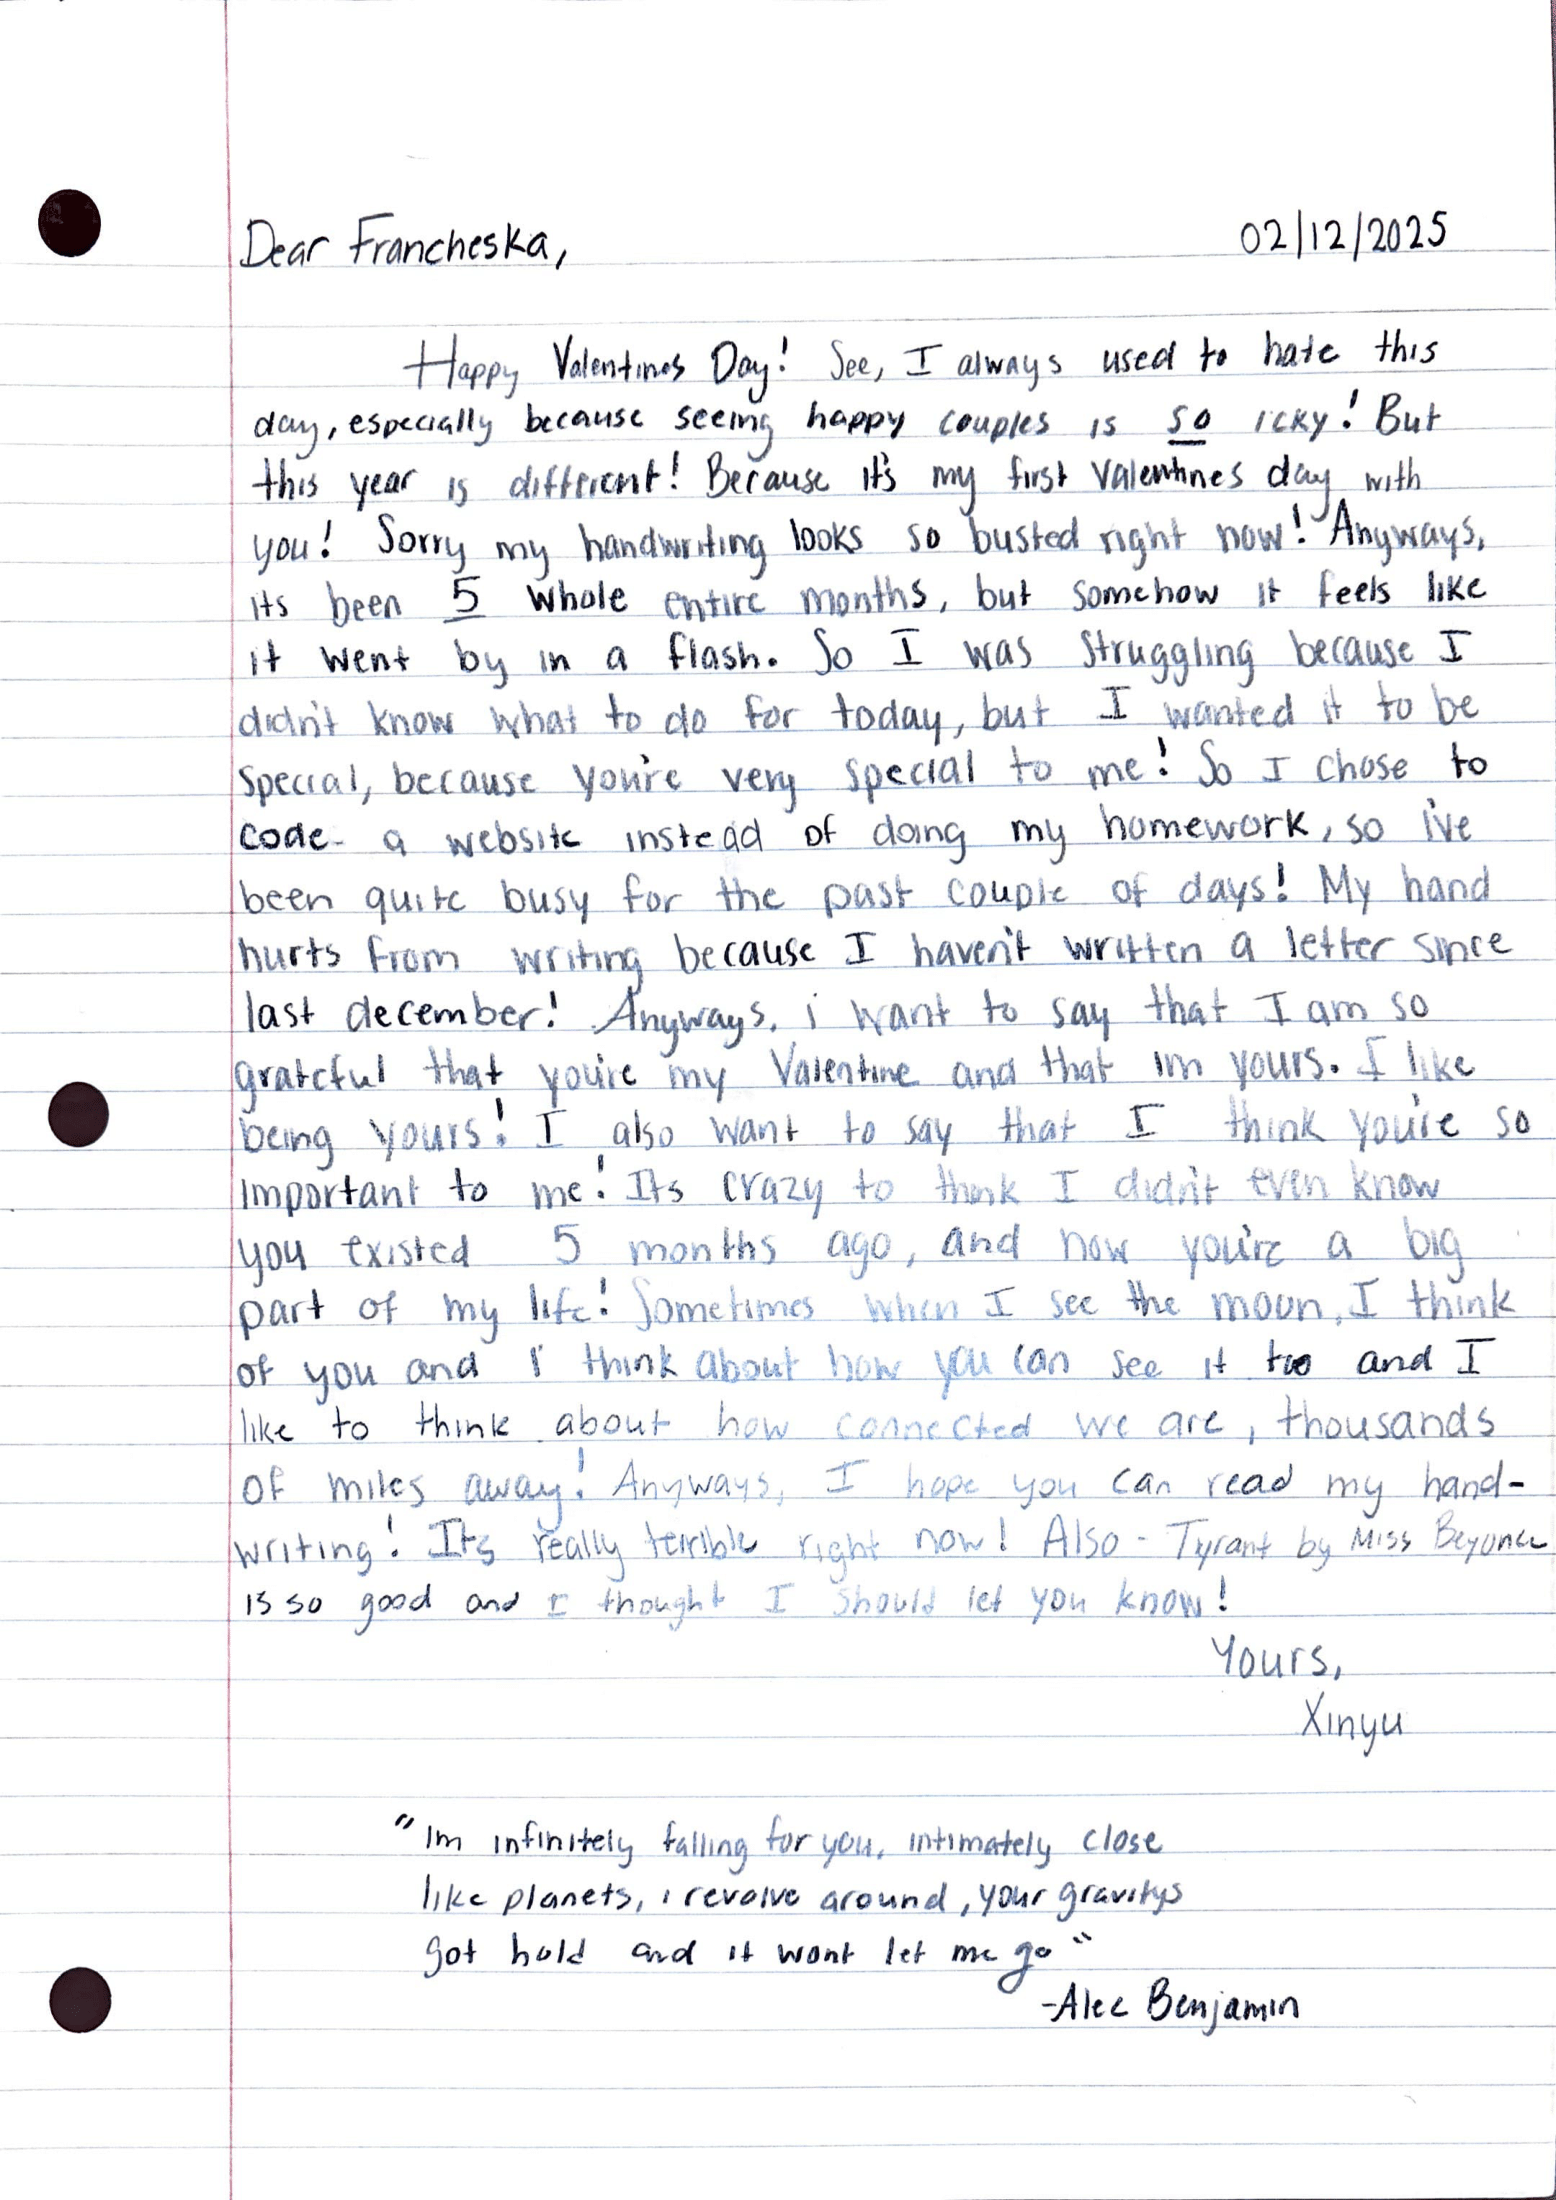 Dear Francheska,
02/12/2025
Happy Valentines Day! See, I always used to hate this
day, especially because seeing happy couples is so icky! But
this year is different! Because it's my first valentines day with
you! Sorry my handwriting looks so busted right now! Anyways,
its been 5 whole entire months, but somehow it feels like
it went by in a flash. So I was struggling because I
didn't know what to do for today, but I wanted it to be
special, because you're very special to me! So I chose to
code a website instead of doing my homework, so i've
been quite busy for the past couple of days! My hand
hurts from writing because I haven't written a letter since
last december! Anyways, i want to say that I am so
grateful that you're my Valentine and that im yours. I like
being yours! I also want to say that I think you're so
important to me! Its crazy to think I didn't even know
you existed 5 months ago, and now you're a big
part of my life! Sometimes when I see the moon, I think
of you and i think about how you can see it too and I
like to think about how connected we are, thousands
of miles away! Anyways, I hope you can read my hand-
writing! It's really terrible right now! Also - Tyrant by Miss Beyonce
is so good and I thought I should let you know!
Yours,
Xinyu
"Im infinitely falling for you, intimately close
like planets, i revolve around, your gravitys
got hold and it wont let me go"
-Alec Benjamin